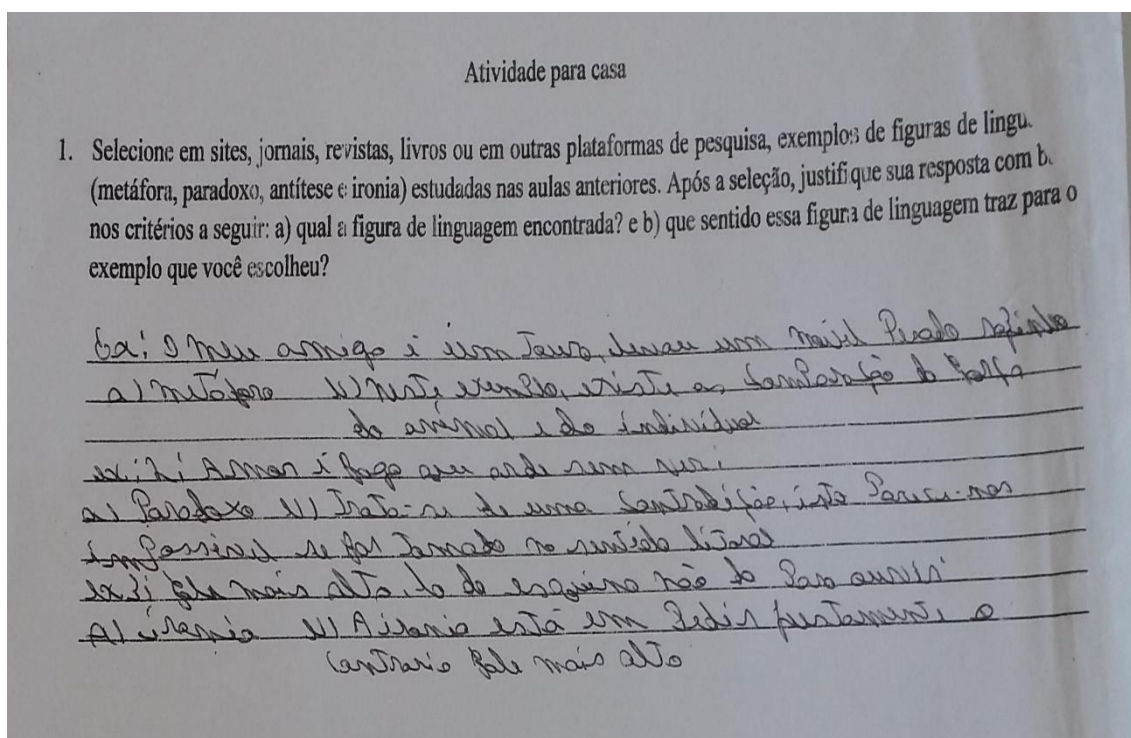 Atividade para casa
1. Selecione em sites, jornais, revistas, livros ou em outras plataformas de pesquisa, exemplos de figuras de lingu
(metáfora, paradoxo, antítese e ironia) estudadas nas aulas anteriores. Após a seleção, justifique sua resposta com b
nos critérios a seguir: a) qual a figura de linguagem encontrada? e b) que sentido essa figura de linguagem traz para o
exemplo que você escolheu?
O meu amigo é um Touro, levou um móvel Pesado sozinho
a) metáfora b) neste exemplo, existe a comparação da força
do animal e do indivídual
ex: 2: Amor é fogo que arde sem ver
a) Paradoxo b) Trata-se de uma contradição, isto Parece-nos
imPossível se for Tomado no sentido literal
ex 3: fale mais alto, lá da esquina não dá Para ouvir
A) irania b) A irania está em Pedir justamente o
contrario fale mais alto